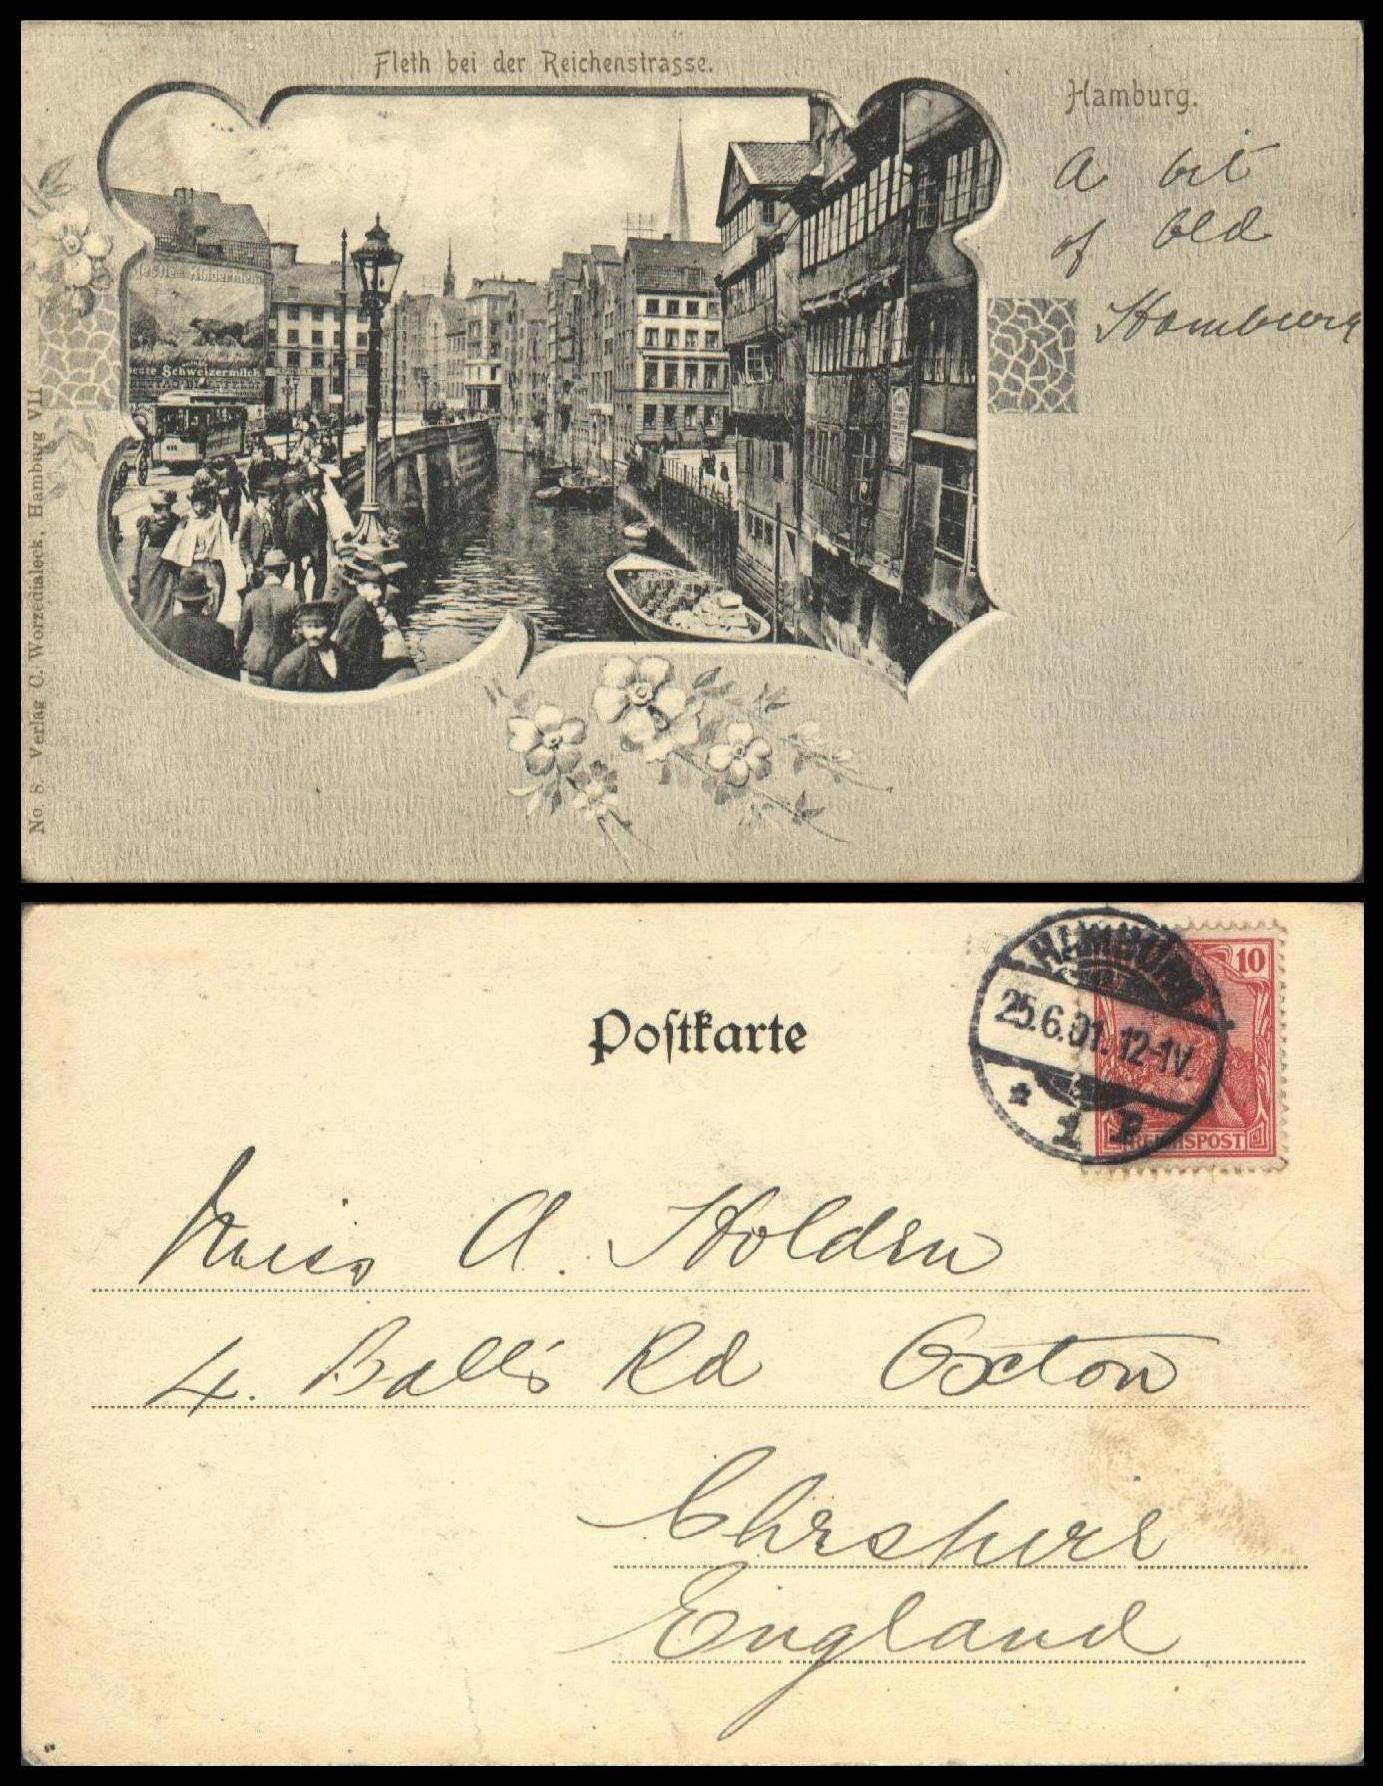 Fleth bei der Reichenstrasse.
Hamburg.
A bit
of Old
Hamburg
Nestle's Kindermehl
Schweizermilch
No 8. Verlag C. Worzedialeck, Hamburg VII
Poſtkarte
HAMBURG
25.6.01. 12-1V.
* 1 P
10
REICHSPOST
Miss A. Holden
4. Ball's Rd Oxton
Cheshire
England